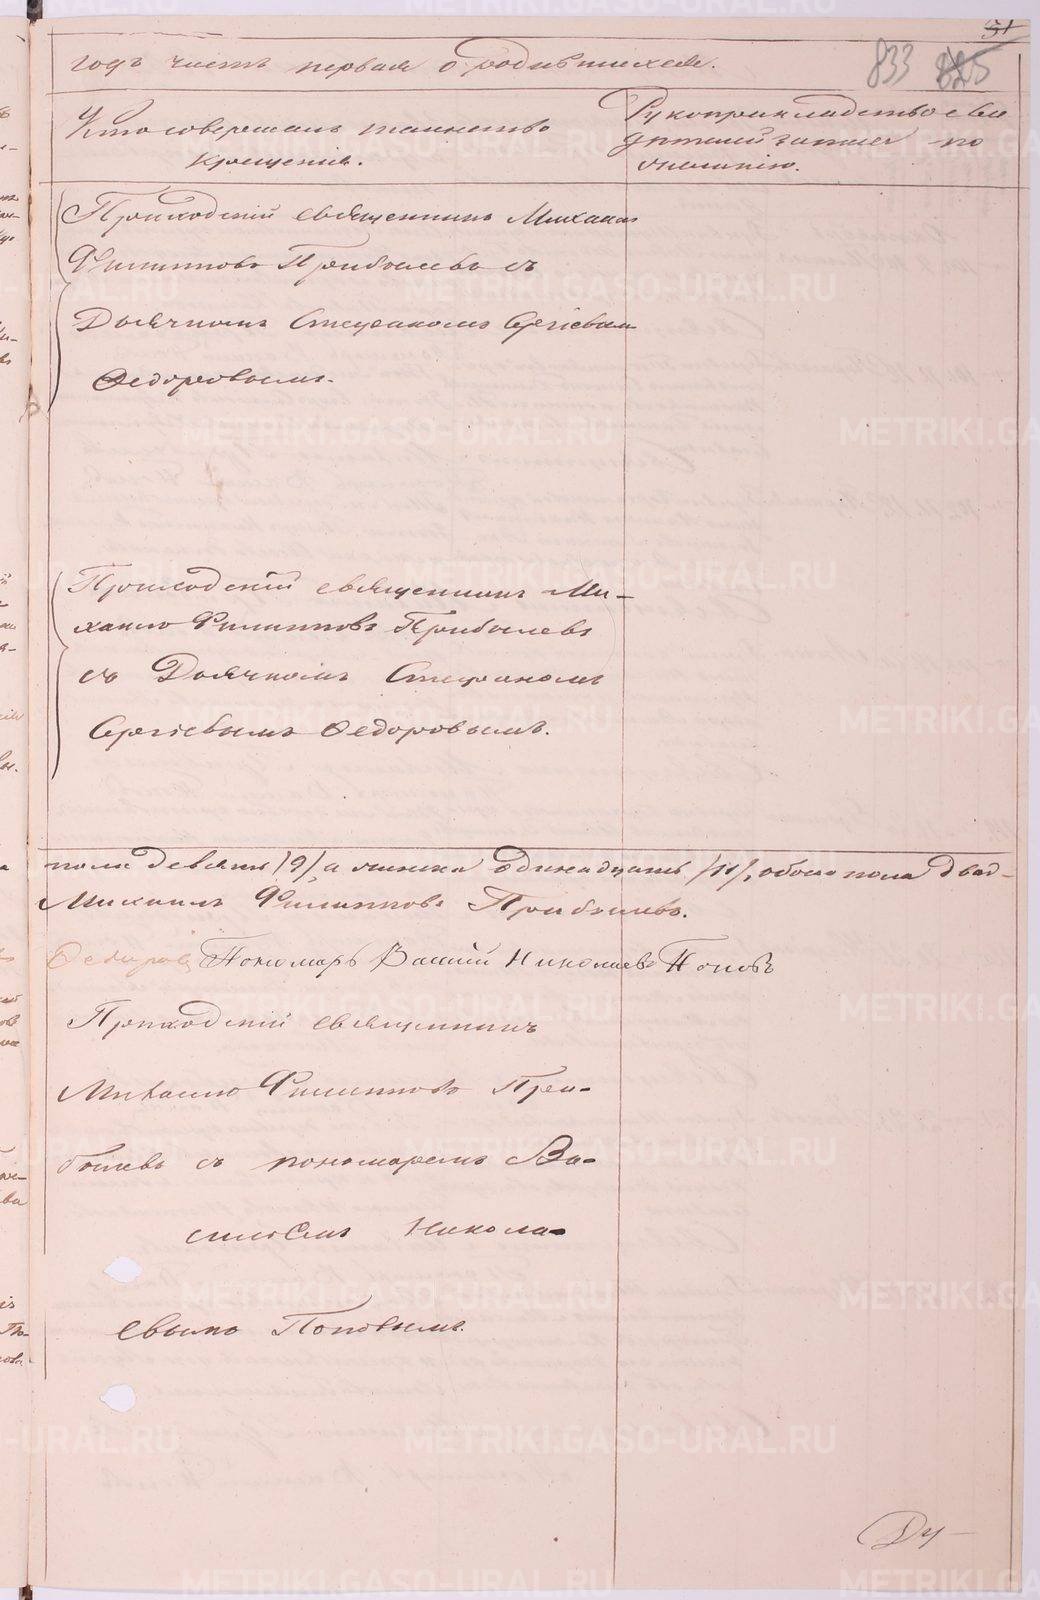 51
833
годъ часть первая о родившихся.
Кто совершалъ таинство
крещенія.
Рукоприкладство сви
дѣтелей записи по
желанію.
Приходскій священникъ Михаилъ
Филипповъ Прибылевъ съ
Дьячкомъ Стефаномъ Сергіевым
Ѳедоровымъ.
Приходскій священникъ Ми-
хаилъ Филипповъ Прибылевъ
съ Дьячкомъ Стефаномъ
Сергіевымъ Ѳедоровымъ.
пола девять /9/, а женска одинадцать /11/, обоего пола двад-
Михаилъ Филипповъ Прибылевъ.
Ѳедоровъ Пономарь Василій Николаевъ Поповъ
Приходскій священникъ
Михаилъ Филипповъ При-
былевъ съ пономаремъ Ва-
сильемъ Никола-
евымъ Поповымъ.
Ду-
METRIKI.GASO-URAL.RU